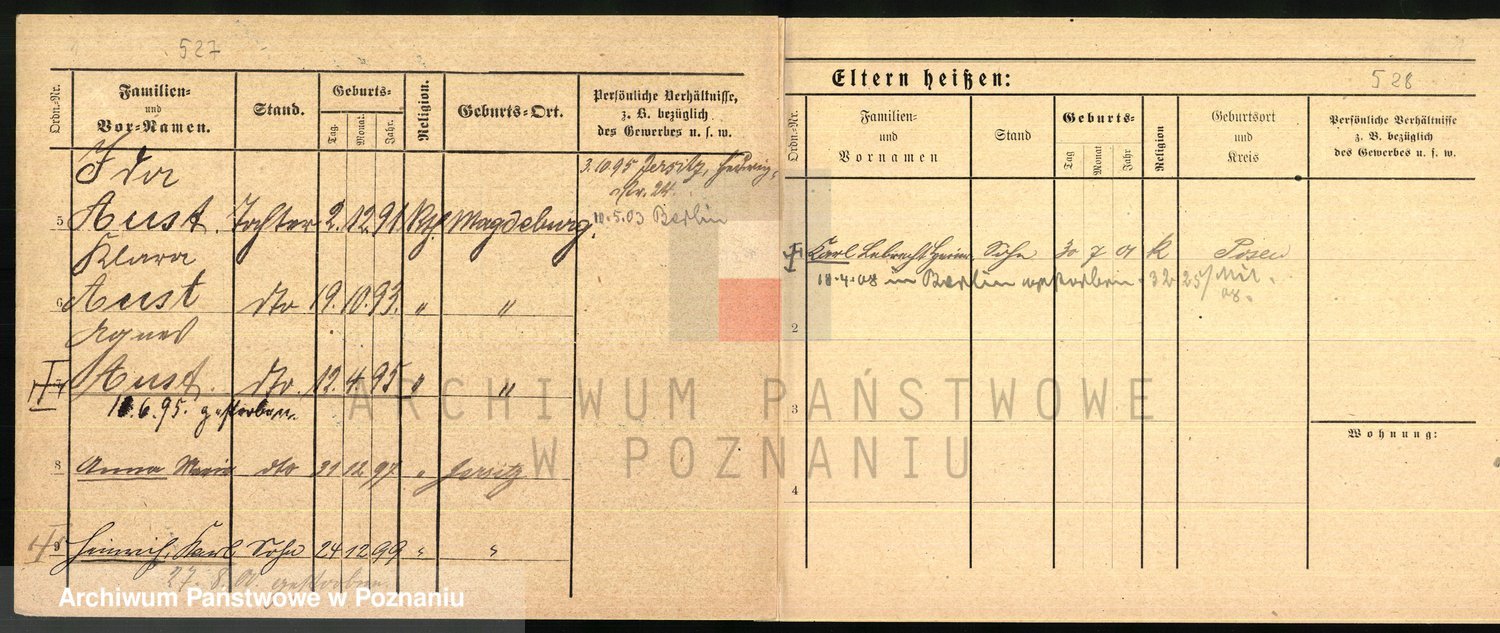 527
Ordn.-Nr.
Familien-
und
Vor-Namen.
Stand.
Geburts-
Tag.
Monat.
Jahr.
Religion.
Geburts-Ort.
Persönliche Verhältnisse,
z. B. bezüglich
des Gewerbes u. s. w.
Ida
3.10.95 Jersitz, Hedwig-
str. 24.
5 Aust. Tochter 2. 12. 91 Kth Magdeburg.
10.5.03 Berlin
Klara
6 Aust dto 19. 10. 93. " "
Agnes
7 Aust. dto. 12. 4. 95 " "
18.6.95. gestorben.
8 Anna Maria dto 21 12 97 " Jersitz
9 Heinrich, Karl Sohn 24 12 99 " "
27. 8. 00. gestorben.
528
Eltern heißen:
Ordn.-Nr.
Familien-
und
Vornamen
Stand
Geburts-
Tag
Monat
Jahr
Religion
Geburtsort
und
Kreis
Persönliche Verhältnisse
z. B. bezüglich
des Gewerbes u. s. w.
Karl Lebrecht Sohn 30 7 01 K Posen
18.4.08 in Berlin gestorben. 32 25/Mil.
08.
2
3
Wohnung:
4
ARCHIWUM PAŃSTWOWE
W POZNANIU
Archiwum Państwowe w Poznaniu